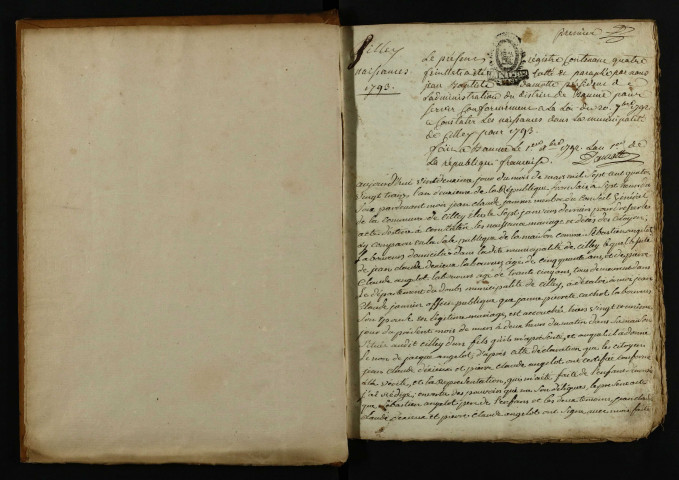 premier
Cilley
naissances
1793.
Le présent registre contenant quatre
feuillets a été cotté et paraphé par nous
jean president de
l'administration du district de Baume pour
servir conformement a la Loi du 20. 7bre 1792
a Constater Les naissances dans la municipalité
de Cilley pour 1793.
fait a Baume Le 1er Xbre 1792. L'an 1er de
La republique françoise.
aujourd'hui vingt deuxieme jour du mois de mars mil Sept cent quatre
vingt treize l'an deuxieme de la République francaise a Sept heures du
Soir pardevant moi jean claude jannin membre du Conseil Général
de la commune de Cilley élu le Sept janvier dernier pour dresser les
actes destinés a constater les naissances mariages et décès des citoyens,
est comparu en la Sale publique de la maison commune Sébastien angelot
Laboureur domicilié dans ladite municipalité de Cilley lequel assisté
de jean claude laboureur agé de cinquante ans et de pierre
Claude angelot laboureur agé de trente cinq ans, tous demeurant dans
Le département du doubs municipalité de Cilley, a déclaré à moi jean
Claude jannin officier publique que jeanne pierrette
Son épouse en légitime mariage, est accouchée hiers vingt unieme
jour du présent mois de mars à deux heures du matin dans Sa maison
Située audit Cilley d'un fils qu'il m'a présenté, et auquel il a donné
le nom de jacque angelot, d'après cette déclaration que les citoyens
jean claude et pierre claude angelot ont certifiée conforme
à la vérité, et la représentation qui m'a été faite de l'enfant dénommé
j'ai rédigé en vertu des pouvoirs qui me Sont délégués, le présent acte
que Sébastien angelot pere de l'enfant et les deux temoins jean claude
et pierre claude angelot ont Signé avec moi fait